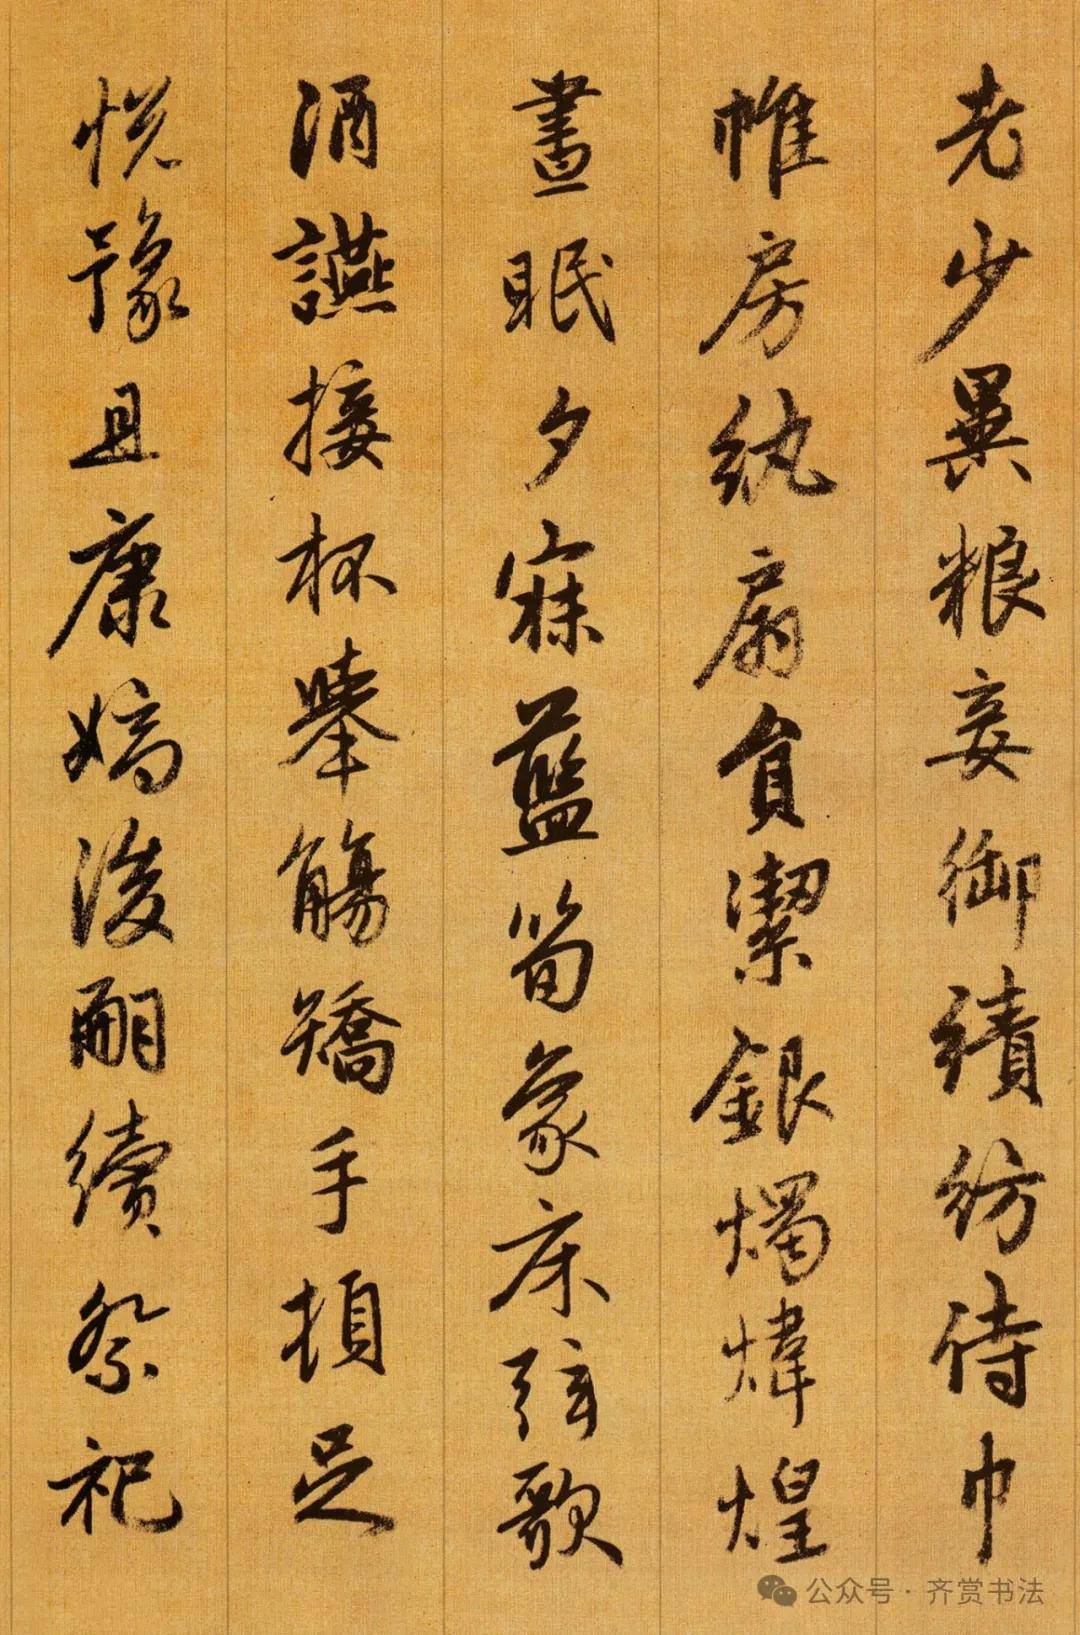 老少異粮妾御績紡侍巾
帷房紈扇員潔銀燭煒煌
晝眠夕寐藍筍象床弦歌
酒讌接杯舉觴矯手頓足
悅豫且康嫡後嗣續祭祀
公众号·齐赏书法